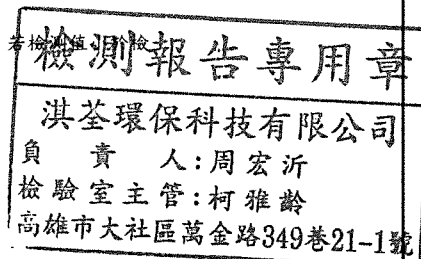 若檢測值
檢測報告專用章
淇荃環保科技有限公司
負責人:周宏沂
檢驗室主管:柯雅齡
高雄市大社區萬金路349巷21-1號